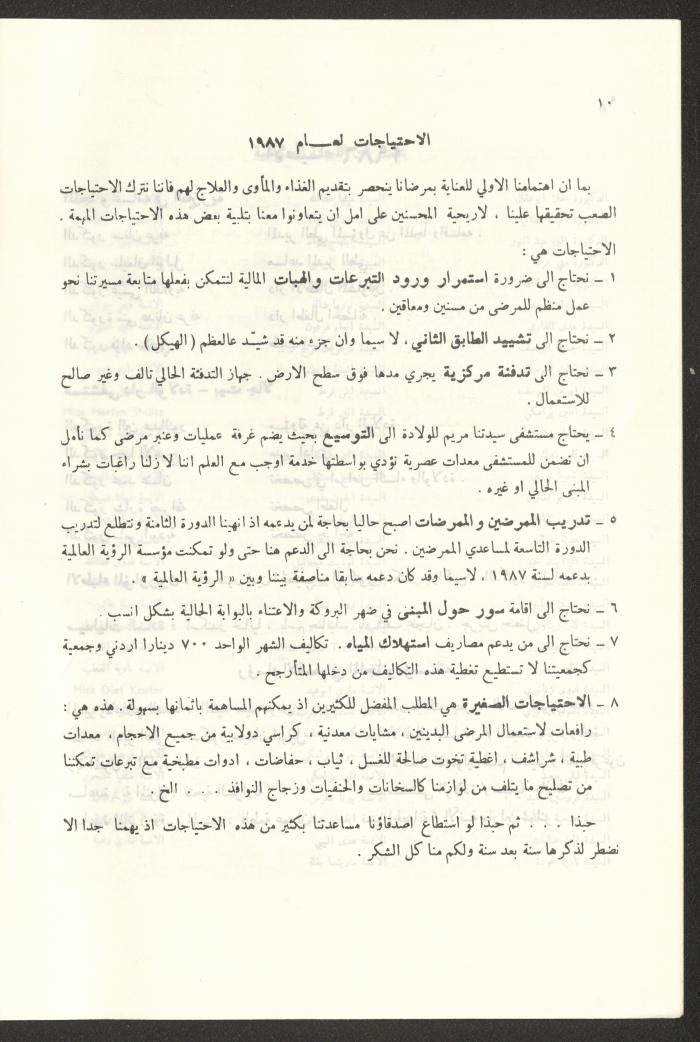 ١٠
الاحتياجات لعـــام ١٩٨٧
بما ان اهتمامنا الاولي للعناية بمرضانا ينحصر بتقديم الغذاء والمأوى والعلاج لهم فاننا نترك الاحتياجات
الصعب تحقيقها علينا ، لاريحية المحسنين على امل ان يتعاونوا معنا بتلبية بعض هذه الاحتياجات المهمة .
الاحتياجات هي :
١ ــ نحتاج الى ضرورة استمرار ورود التبرعات والهبات المالية لنتمكن بفعلها متابعة مسيرتنا نحو
عمل منظم للمرضى من مسنين ومعاقين .
٢ ــ نحتاج الى تشييد الطابق الثاني ، لا سيما وان جزء منه قد شيّد عالعظم ( الهيكل ) .
٣ ــ نحتاج الى تدفئة مركزية يجري مدها فوق سطح الارض . جهاز التدفئة الحالي تالف وغير صالح
للاستعمال .
٤ ــ يحتاج مستشفى سيدتنا مريم للولادة الى التوسيع بحيث يضم غرفة عمليات وعنبر مرضى كما نأمل
ان نضمن للمستشفى معدات عصرية نؤدي بواسطتها خدمة اوجب مع العلم اننا لا زلنا راغبات بشراء
المبنى الحالي او غيره .
٥ ــ تدريب الممرضين و الممرضات اصبح حاليا بحاجة لمن يدعمه اذ انهينا الدورة الثامنة ونتطلع لتدريب
الدورة التاسعة لمساعدي الممرضين . نحن بحاجة الى الدعم هنا حتى ولو تمكنت مؤسسة الرؤية العالمية
بدعمه لسنة ١٩٨٧ ، لاسيما وقد كان دعمه سابقا مناصفة بيننا وبين « الرؤية العالمية » .
٦ ــ نحتاج الى اقامة سور حول المبنى في ضهر البروكة والاعتناء بالبوابة الحالية بشكل انسب .
٧ ــ نحتاج الى من يدعم مصاريف استهلاك المياه . تكاليف الشهر الواحد ٧٠٠ دينارا اردني وجمعية
كجمعيتنا لا تستطيع تغطية هذه التكاليف من دخلها المتأرجح .
٨ ــ الاحتياجات الصغيرة هي المطلب المفضل للكثيرين اذ يمكنهم المساهمة باثمانها بسهولة . هذه هي :
رافعات لاستعمال المرضى البدينين ، مشايات معدنية ، كراسي دولابية من جميع الاحجام ، معدات
طبية ، شراشف ، اغطية تخوت صالحة للغسل ، ثياب ، حفاضات ، ادوات مطبخية مع تبرعات تمكننا
من تصليح ما يتلف من لوازمنا كالسخانات والحنفيات وزجاج النوافذ . . . الخ .
حبذا . . . ثم حبذا لو استطاع اصدقاؤنا مساعدتنا بكثير من هذه الاحتياجات اذ يهمنا جدا الا
نضطر لذكرها سنة بعد سنة ولكم منا كل الشكر .